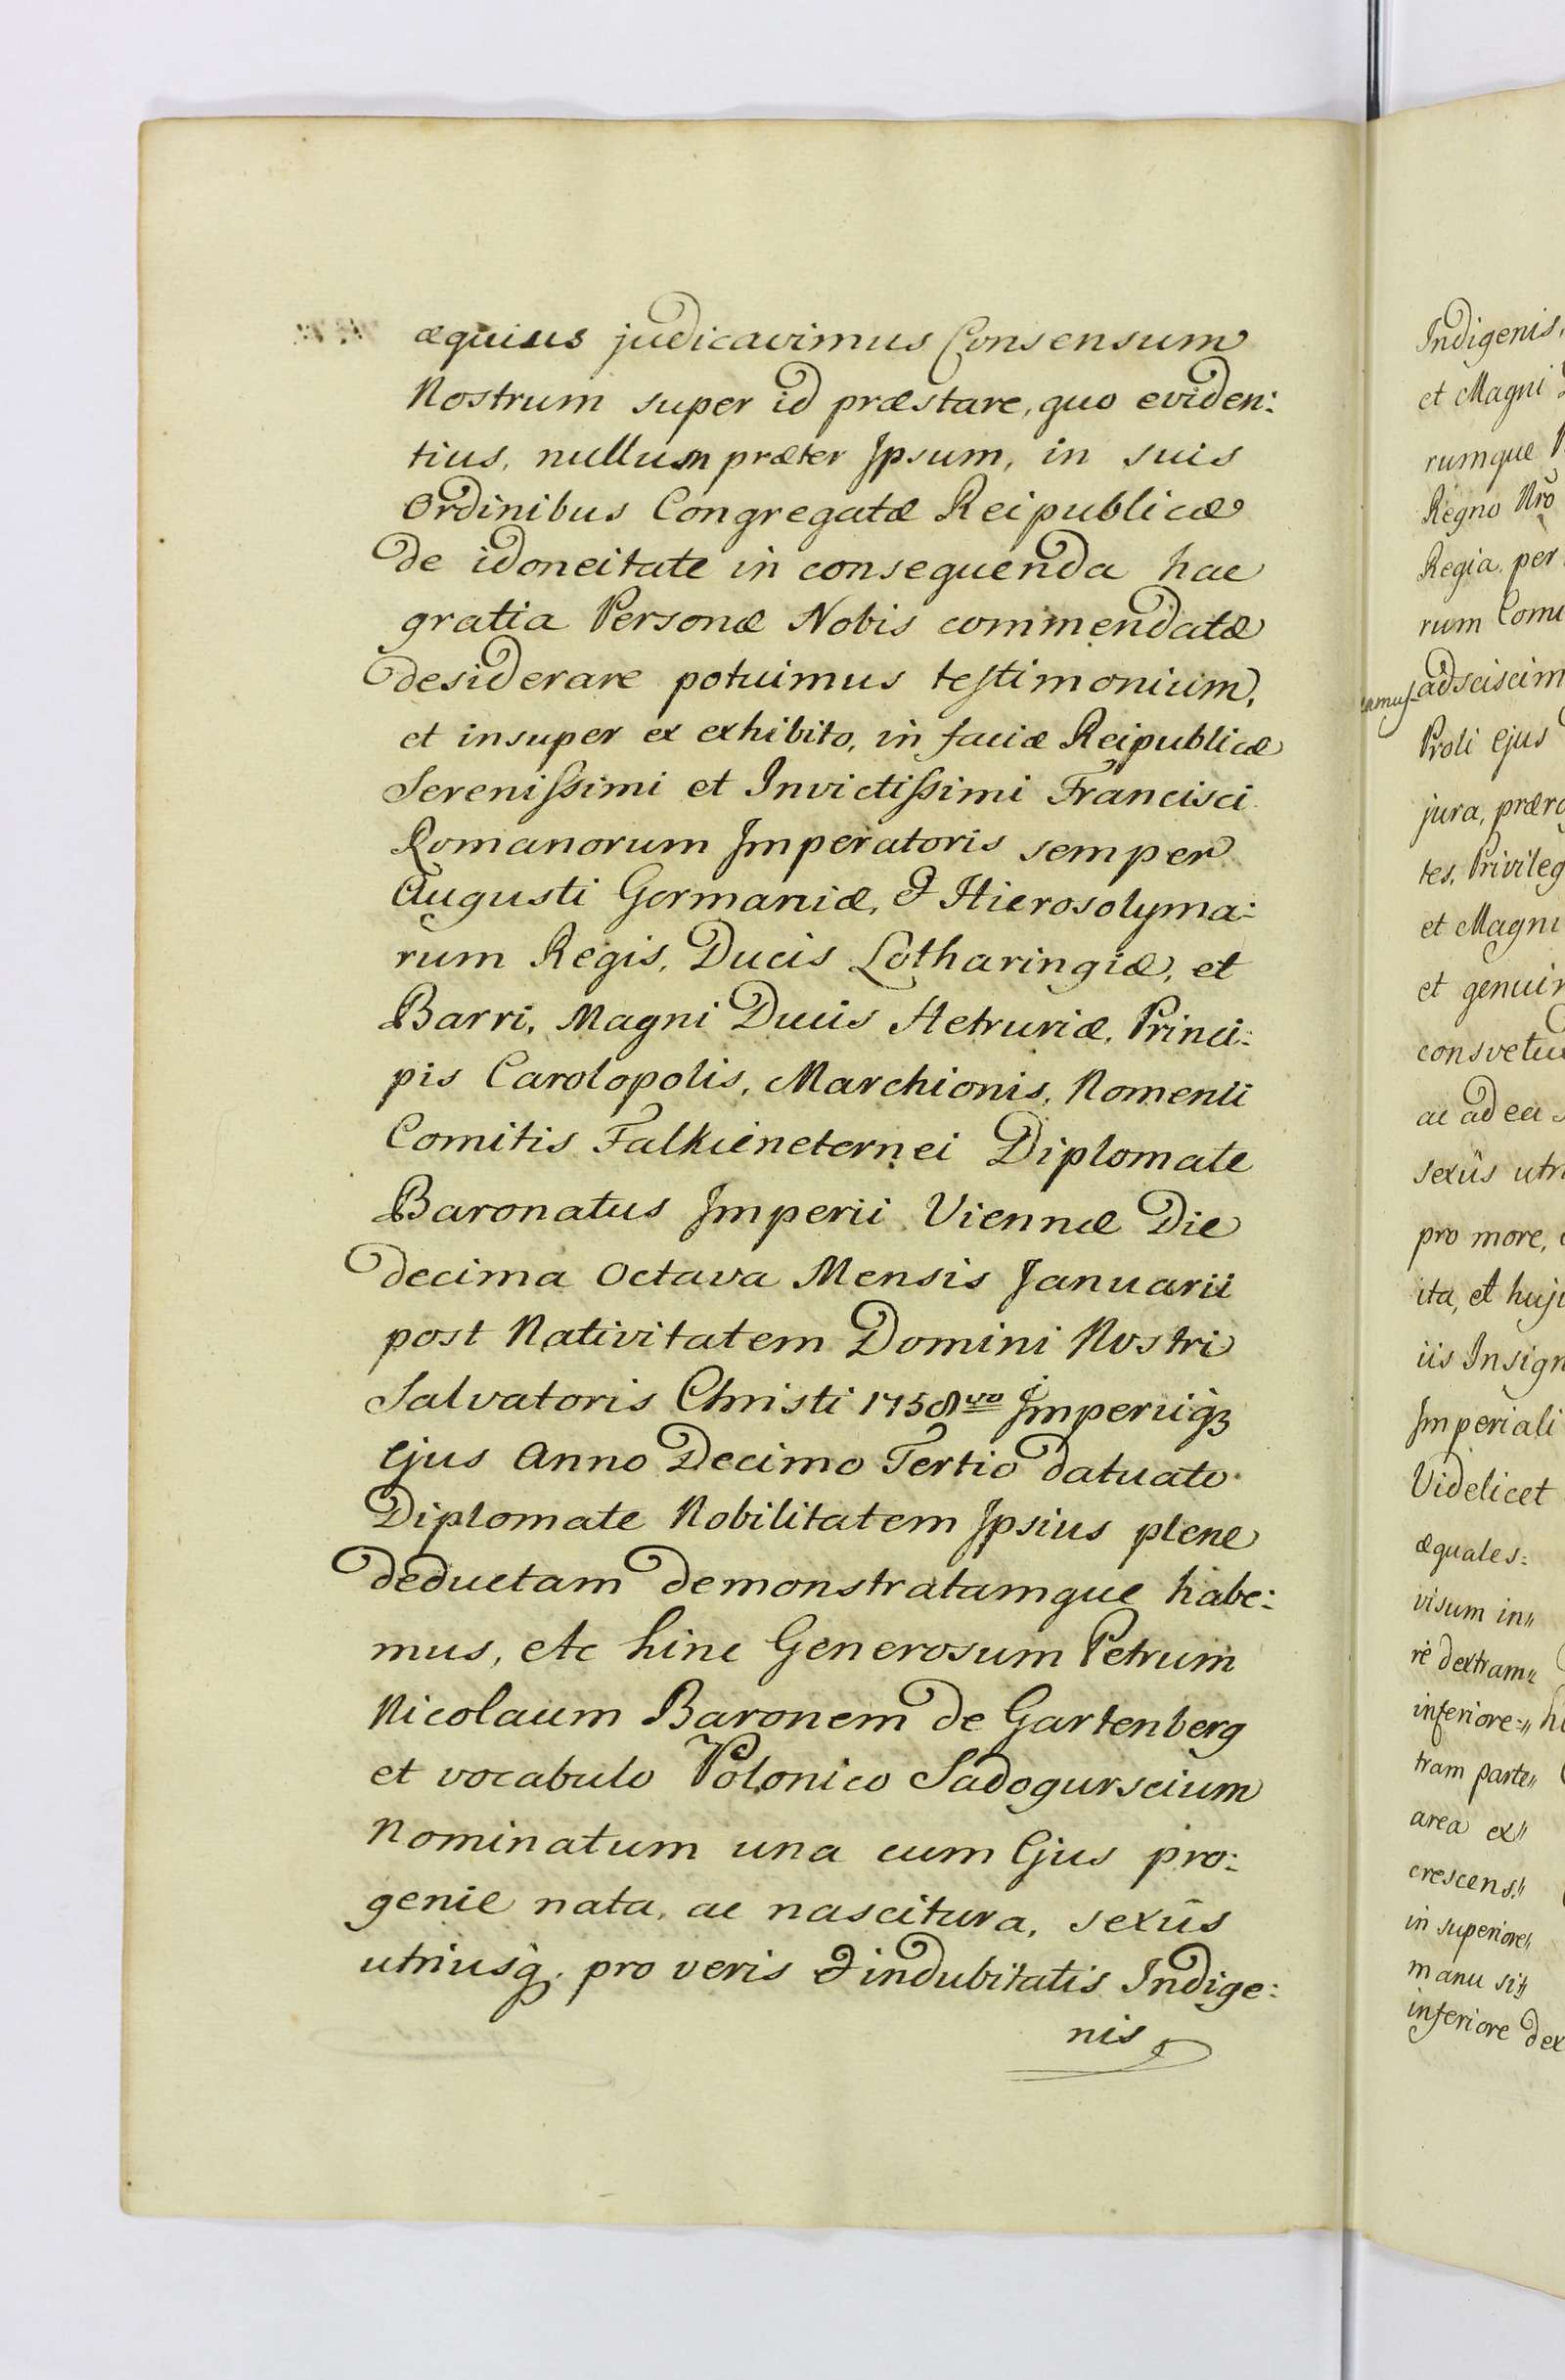 æquius judicavimus Consensum
Nostrum super id præstare, quo eviden:
tius, nullum præter Ipsum, in suis
Ordinibus Congregatæ Reipublicæ
de idoneitate in consequenda hac
gratia Personæ Nobis commendatæ
desiderare potuimus testimonium,
et insuper ex exhibito, in faciæ Reipublicæ
Serenissimi et Invictissimi Francisci
Romanorum Imperatoris semper
Augusti Germaniæ, & Hierosolyma:
rum Regis, Ducis Lotharingiæ, et
Barri, Magni Ducis Hetruriæ, Princi:
pis Carolopolis, Marchionis, Nomenii
Comitis Falkieneternei Diplomate
Baronatus Imperii Viennæ Die
decima Octava Mensis Januarii
post Nativitatem Domini Nostri
Salvatoris Christi 1758vo Imperiiq3
Ejus Anno Decimo Tertio datuato
Diplomate Nobilitatem Ipsius plene
deductam demonstratamque habe:
mus, etc hinc Generosum Petrum
Nicolaum Baronem de Gartenberg
et vocabulo Polonico Sadogurscium
Nominatum una cum Ejus pro:
genie nata, ac nascitura, sexûs
utriusq. pro veris & indubitatis Indige:
nis
Indigenis,
et Magni
rumque
Regno Nro
Regia per
rum Comi
amus adsciscim
Proli ejus
jura, præro
tes, Privileg
et Magni
et genuin
consvetu
ac ad ea
sexûs utri
pro more,
ita, et huju
iis Insign
Imperiali
Videlicet
æquales:
visum in"
re dextram"
inferiore:"
tram parte"
area ex"
crescens."
in superiore"
manu si"
inferiore dex